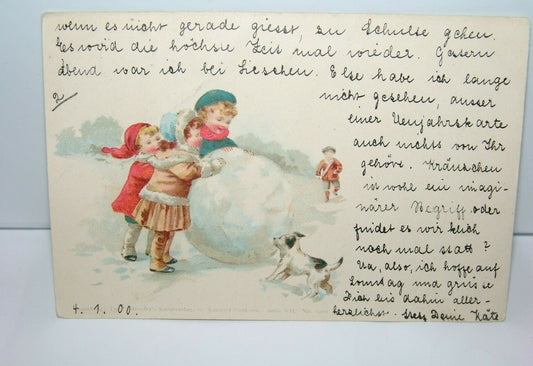 wenn es nicht gerade giesst, zu Schulse gehen.
Es wird die höchste Zeit mal wieder. Gestern
Abend war ich bei Lieschen. Else habe ich lange
2
nicht gesehen, ausser
einer Neujahrskarte
auch nichts von Ihr
gehört. Kränzchen
ist wohl ein imagi-
närer Begriff oder
findet es wirklich
noch mal statt?
Na, also, ich hoffe auf
Sonntag und grüsse
Dich bis dahin aller-
herzlichst. Deine Käte
4. 1. 00.